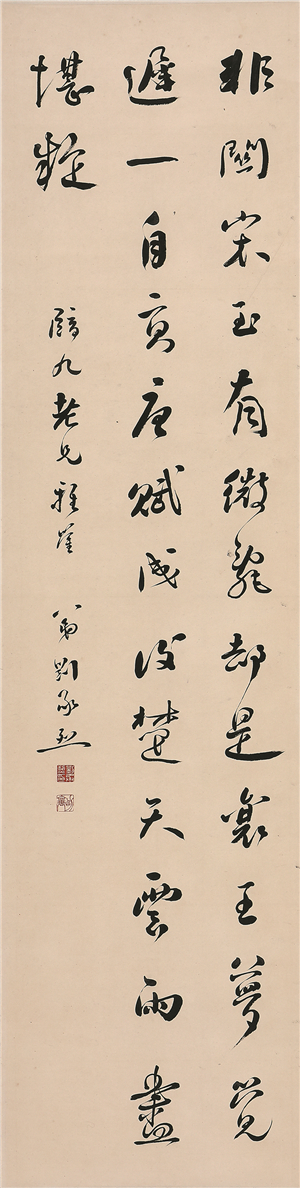 非關宋玉有微辭却是襄王夢覺
遲一自高唐賦成後楚天雲雨盡
堪疑
九老兄雅屬 弟劉承烈